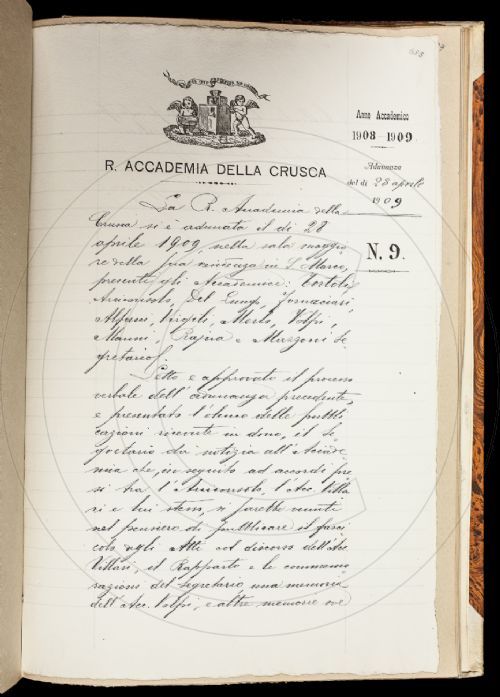 Anno Accademico
1908-1909
R. ACCADEMIA DELLA CRUSCA
Adunanza
del dì 28 aprile
1909
N. 9.
La R. Accademia della
Crusca si è adunata il dì 28
aprile 1909 nella sala maggio
re della sua residenza in S. Marco,
presenti gli Accademici: Tortoli
Arciconsolo, Del Lungo, Fornaciari,
Alfani, Vitelli, Volpi,
Rajna e Mazzoni Se
gretario.
Letto e approvato il processo
verbale dell'adunanza precedente,
e presentato l'elenco delle pubbli
cazioni ricevute in dono, il Se
gretario dà notizia all'Accade
mia che, in seguito ad accordi pre
si tra l'Arciconsolo, l'Acc. Villa
ri e lui stesso, si sarebbe venuti
nel pensiero di pubblicare il fasci
colo degli Atti col discorso dell'Acc.
Villari, il Rapporto e le commemo
razioni del Segretario una memoria
dell'Acc. Volpi, e altre memorie ove